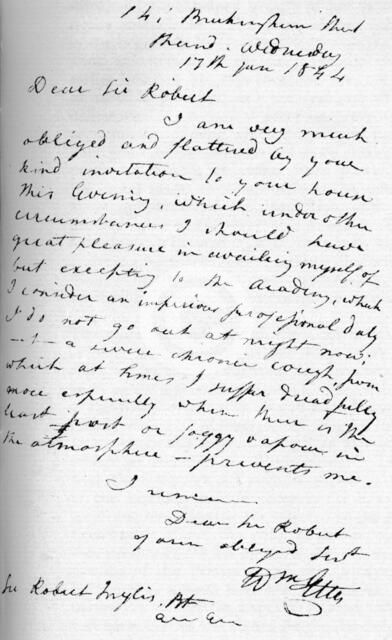 14 Buckingham Street
Strand. Wednesday
17th Jan 1844
Dear Sir Robert
I am very much
obliged and flattered by your
kind invitation to your house
This Evening, which under other
circumstances I should have
great pleasure in availing myself of
but excepting to the Academy, which
I consider an imperious profesional duty
I do not go out at night now;
— a severe chronic cough, from
which at times I suffer dreadfully
more especially when there is the
least frost or foggy vapour in
the atmosphere — prevents me.
I remain
Dear Sir Robert
your obliged Servt
Wm Etty
Sir Robert Inglis. Bt